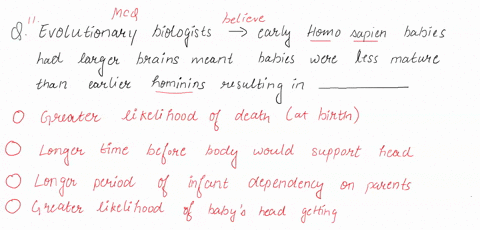 MCQ
believe
Q. 11. Evolutionary biologists → early Homo sapien babies
had larger brains meant babies were less mature
than earlier hominins resulting in
Greater likelihood of death (at birth)
Longer time before body would support head
Longer period of infant dependency on parents
Greater likelihood of baby's head getting